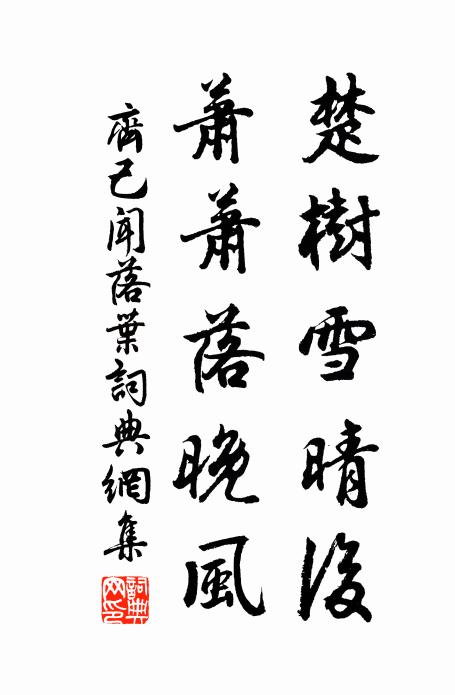 楚樹雪晴後
蕭蕭落晚風
齊己聞落葉詞典網集
詞典網印